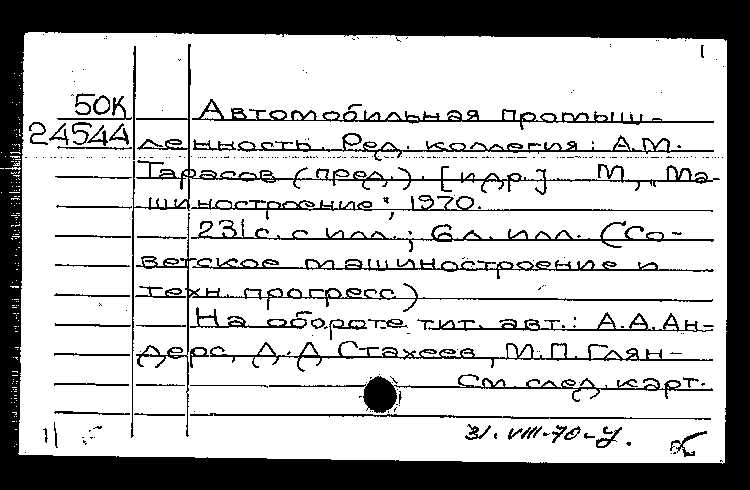 1
50К Автомобильная промыш-
24544 ленность. Ред. коллегия: А.М.
Тарасов (пред.). [и др.] М., "Ма-
шиностроение", 1970.
231с. с илл.; 6 л. илл. (Со-
ветское машиностроение и
техн. прогресс)
На обороте тит. авт.: А.А.Ан-
дерс, Д.Д Стахеев, М.П.Глян-
См. след. карт.
31.VIII-70-У.